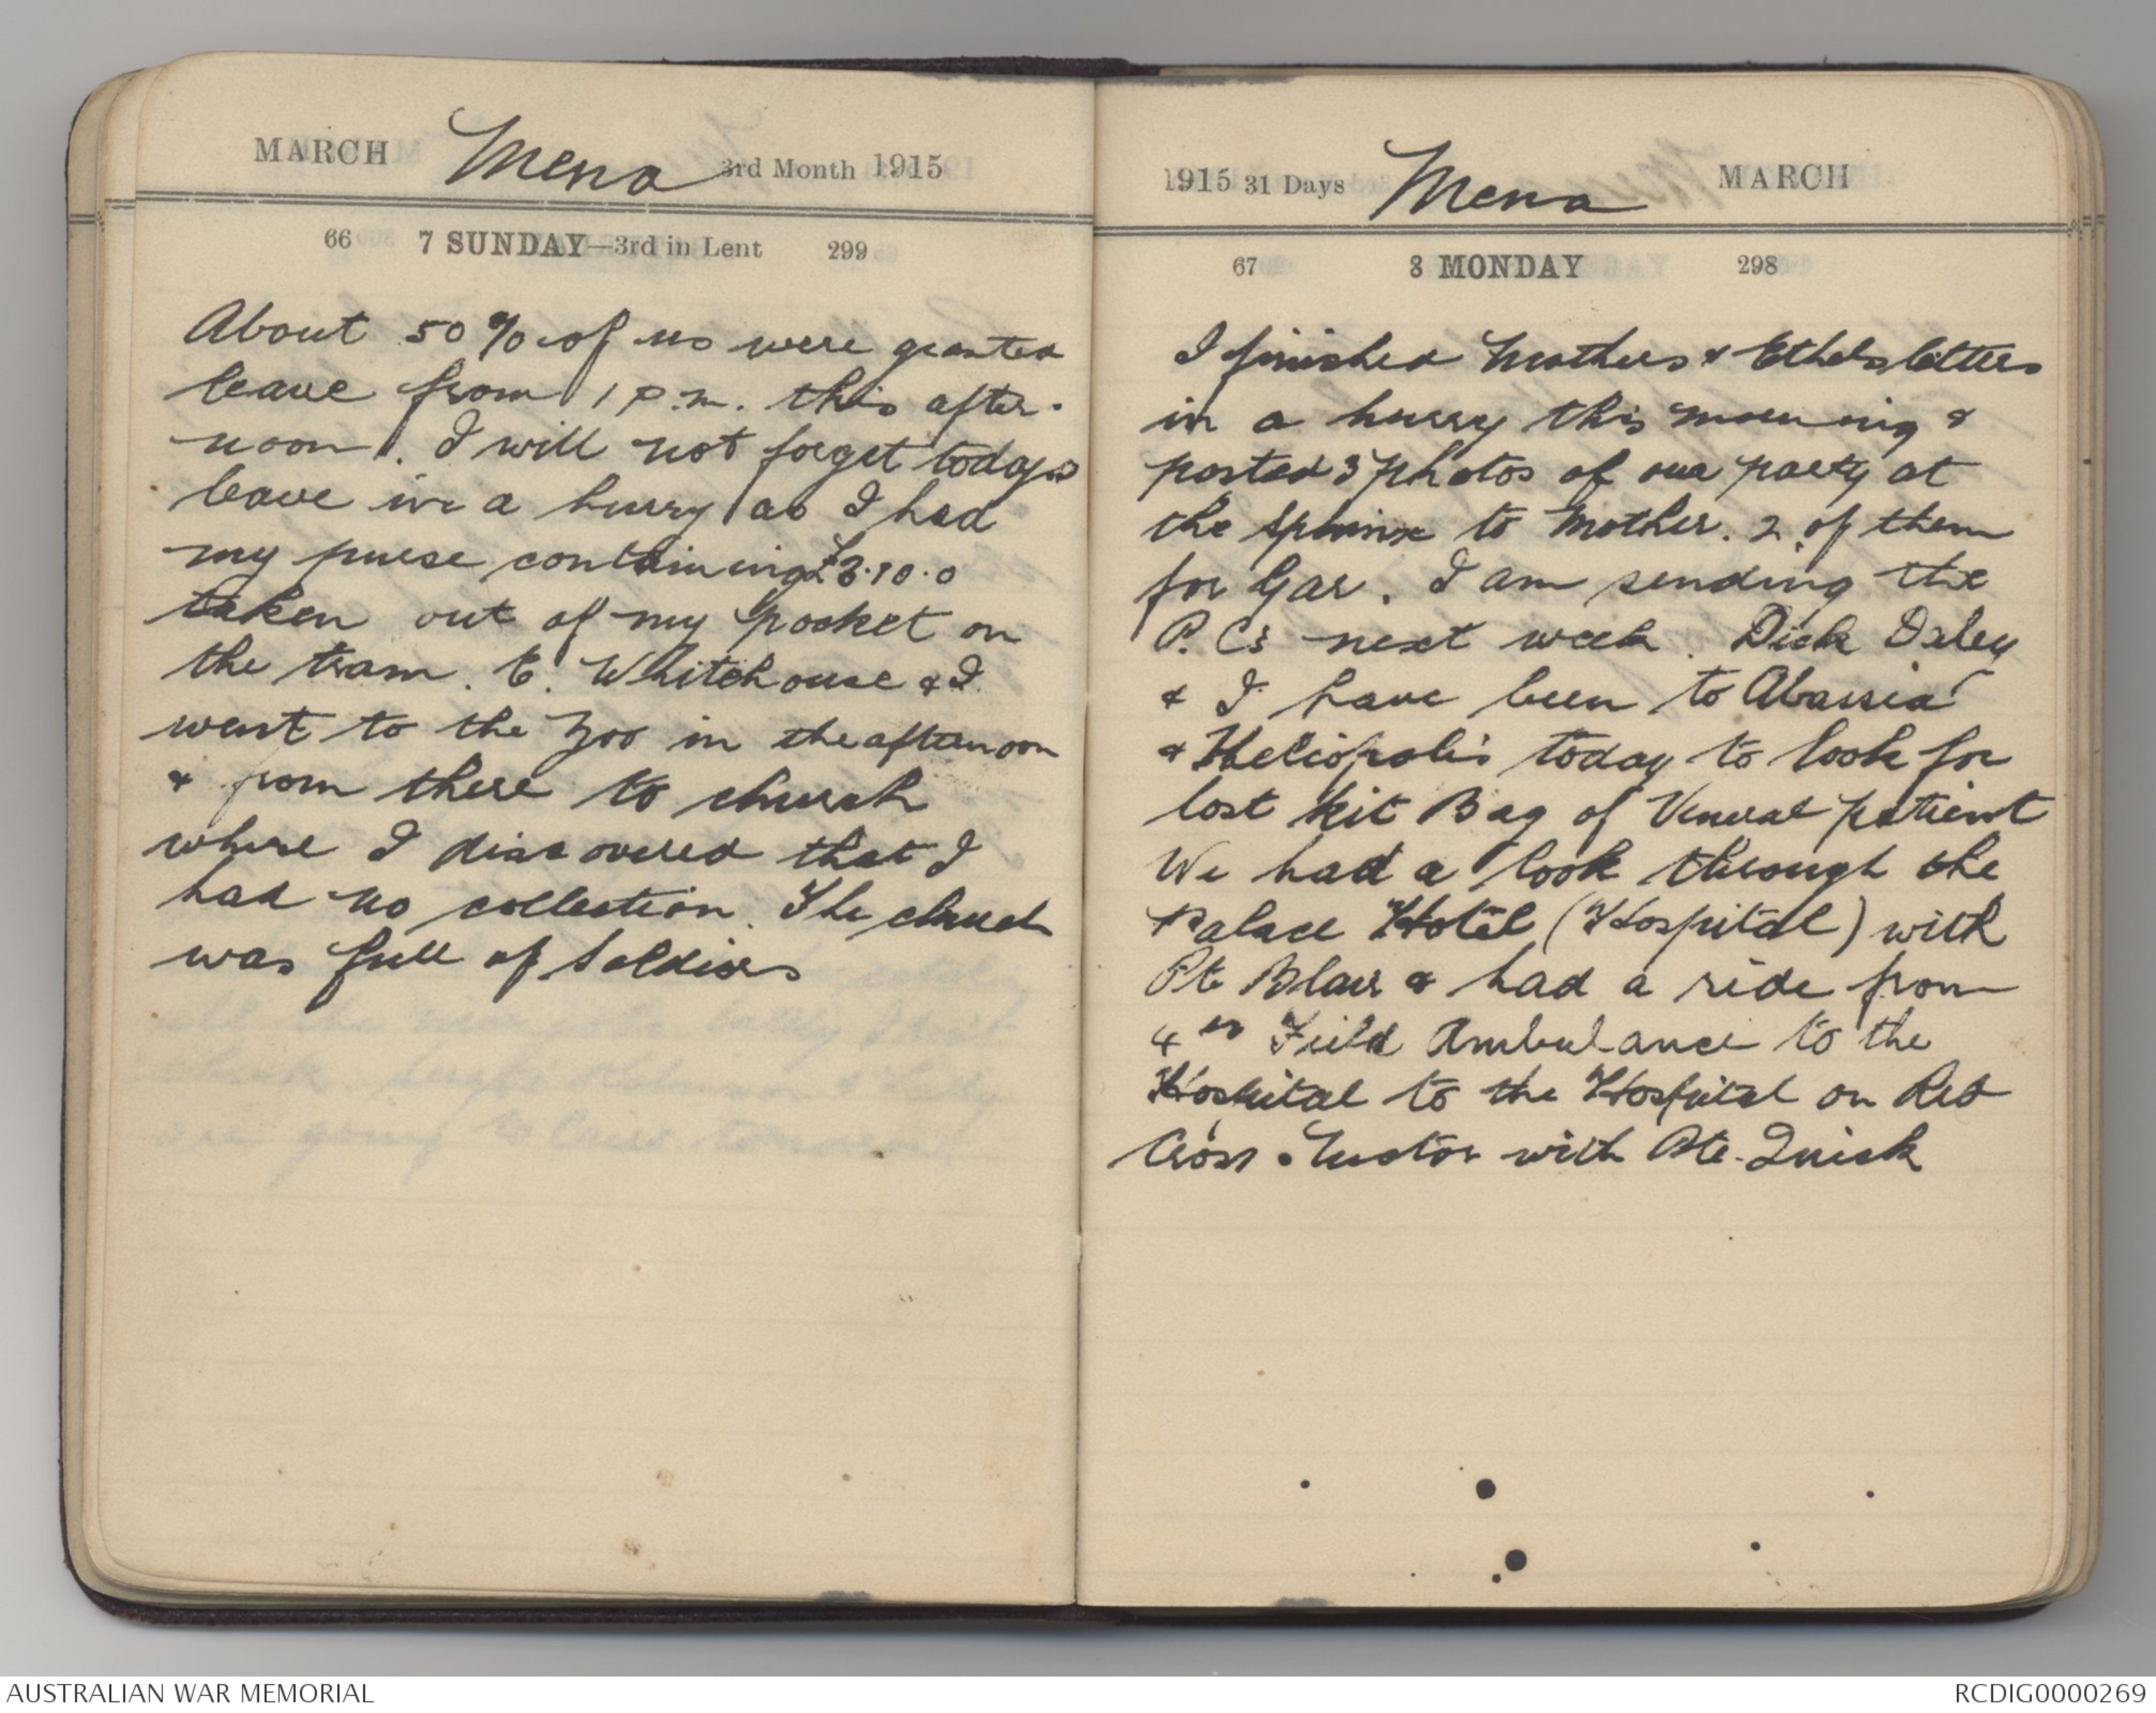 MARCH Mena 3rd Month 1915
66 7 SUNDAY—3rd in Lent 299
About 50% of us were granted
leave from 1 P.m. this after-
noon. I will not forget todays
leave in a hurry as I had
my purse containing £3.10.0
taken out of my pocket on
the tram. E. Whitehouse & I
went to the Zoo in the afternoon
& from there to church
where I discovered that I
had no collection. The church
was full of Soldiers
1915 31 Days Mena MARCH
67 8 MONDAY 298
I finished Mothers & Ethels letters
in a hurry this morning &
posted 3 photos of our party at
the Sphinx to Mother. 2 of them
for Gar. I am sending the
P.Cs next week. Dick Daley
& I have been to Abassia
& Heliopolis today to look for
lost Kit Bag of Veneral patient
We had a look through the
Palace Hotel (Hospital) with
Pte Blair & had a ride from
4th Field Ambulance to the
Hospital to the Hospital on Red
Cross Motor with Pte. Quick
AUSTRALIAN WAR MEMORIAL
RCDIG0000269